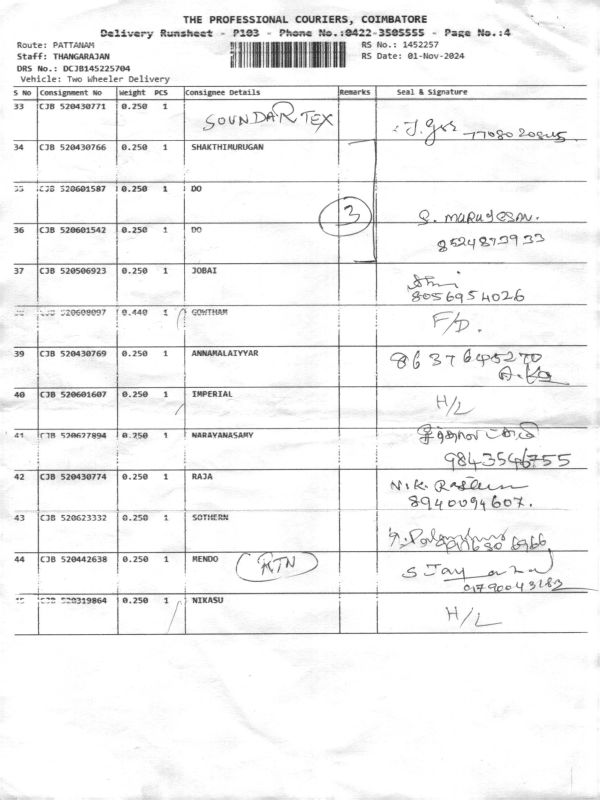 THE PROFESSIONAL COURIERS, COIMBATORE
Delivery Runsheet - P103 - Phone No.:0422-3505555 - Page No.:4
Route: PATTANAM RS No.: 1452257
Staff: THANGARAJAN RS Date: 01-Nov-2024
DRS No.: DCJB145225704
Vehicle: Two Wheeler Delivery
S No Consignment No Weight PCS Consignee Details Remarks Seal & Signature
33 CJB 520430771 0.250 1 SOUNDAR TEX
34 CJB 520430766 0.250 1 SHAKTHIMURUGAN
35 CJB 520601587 0.250 1 DO
3 S. MURUGESAN.
36 CJB 520601542 0.250 1 DO 8524873933
37 CJB 520506923 0.250 1 JOBAI
8056954026
38 CJB 520608097 0.440 1 GOWTHAM F/D.
39 CJB 520430769 0.250 1 ANNAMALAIYYAR 8637645270
40 CJB 520601607 0.250 1 IMPERIAL H/L
41 CJB 520627894 0.250 1 NARAYANASAMY
9843546755
42 CJB 520430774 0.250 1 RAJA N.K.
8940094607.
43 CJB 520623332 0.250 1 SOTHERN
44 CJB 520442638 0.250 1 MENDO RTN S Jay
45 CJB 520319864 0.250 1 NIKASU H/L